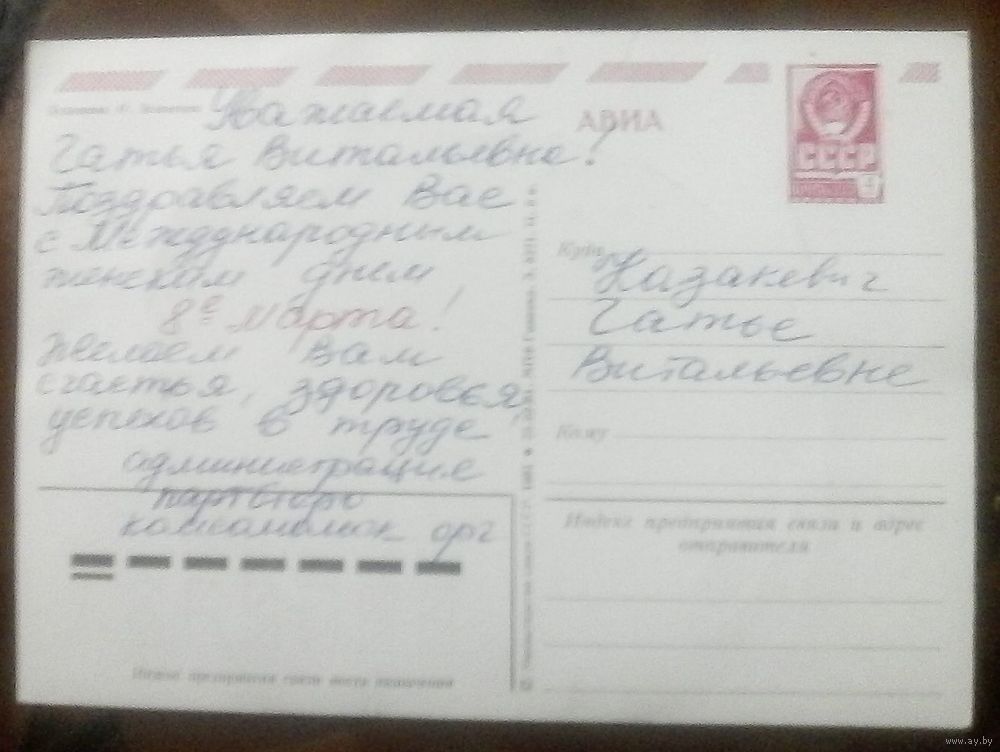 Уважаемая
Татья Витальевна!
Поздравляем Вас
с Международным
женским днем
8е марта!
Желаем Вам
счастья, здоровья,
успехов в труде
администрация
партбюро
комсомольск орг
АВИА
СССР
Куда
Казакевич
Татье
Витальевне
Кому
Индекс предприятия связи и адрес
отправителя
Индекс предприятия связи места назначения
www.ay.by